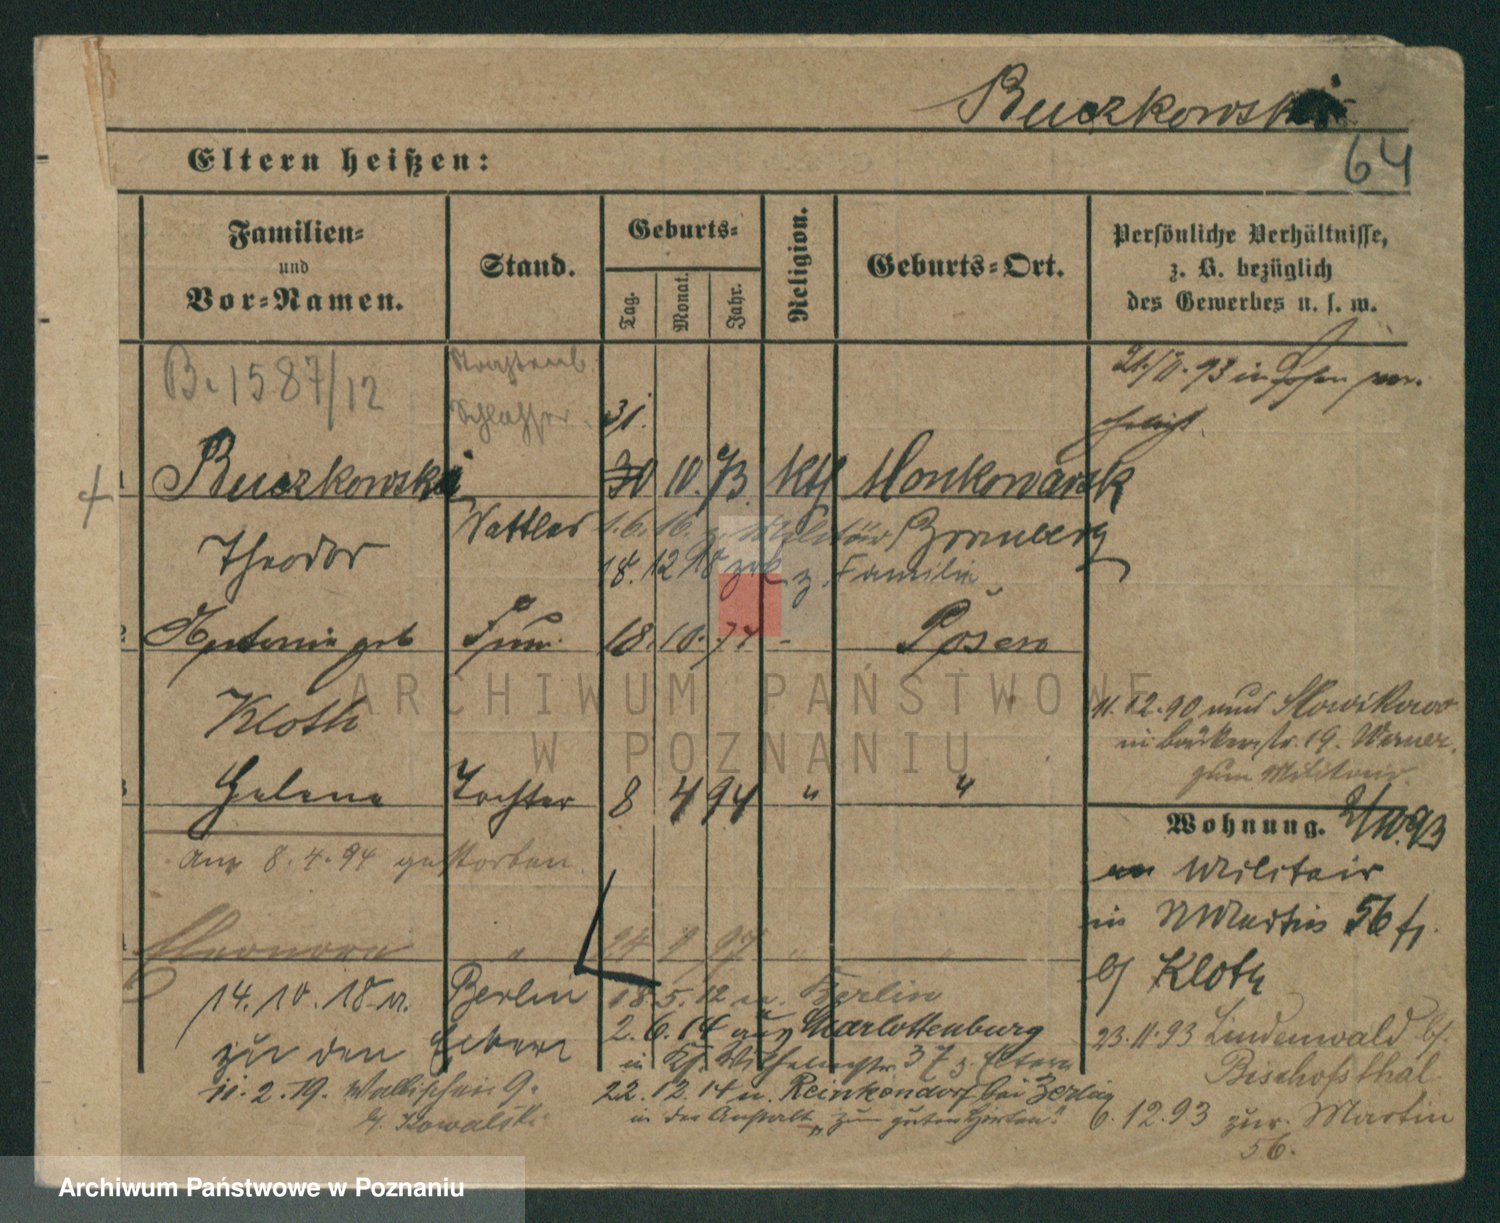 Buczkowski
64
Eltern heißen:
Familien=
und
Vor=Namen.
Stand.
Geburts=
Tag.
Monat.
Jahr.
Religion.
Geburts=Ort.
Persönliche Verhältnisse,
z. B. bezüglich
des Gewerbes u. s. w.
B. 1587/12
Schlosser.
31.
93 in Posen ver-
ehelicht.
1 Buczkowski 30 10. 73. Kth
Theodor
1. 6. 16. z. Militär Bromberg
18. 12 18 zrk z. Familie
2 Antonie geb Frau 18. 10. 74 - Posen
Kloth
11. 12. 90 nach
in Bäckerstr. 19. Werner.
zum Militair
3 Helene Tochter 8 4 94 " "
am 8. 4. 94 gestorben
Wohnung. 93
Militair
in Martin 56
b/ Kloth
4 Eleonore " 97 "
14. 10. 18 n. Berlin
zu den Eltern
18. 5. 12 n. Berlin
2. 6. 14 aus Charlottenburg
in Ks. Wilhelmstr. 37 z. Eltern
22. 12. 14 n. Reinkendorf bei Berlin
in der Anstalt „zum guten Hirten"
11. 2. 19. Wallischei 9.
b/ Kowalski
23. 11. 93 Lindenwald b/.
Bischofsthal
6. 12. 93 zur. Martin
56.
ARCHIWUM PAŃSTWOWE
W POZNANIU
Archiwum Państwowe w Poznaniu